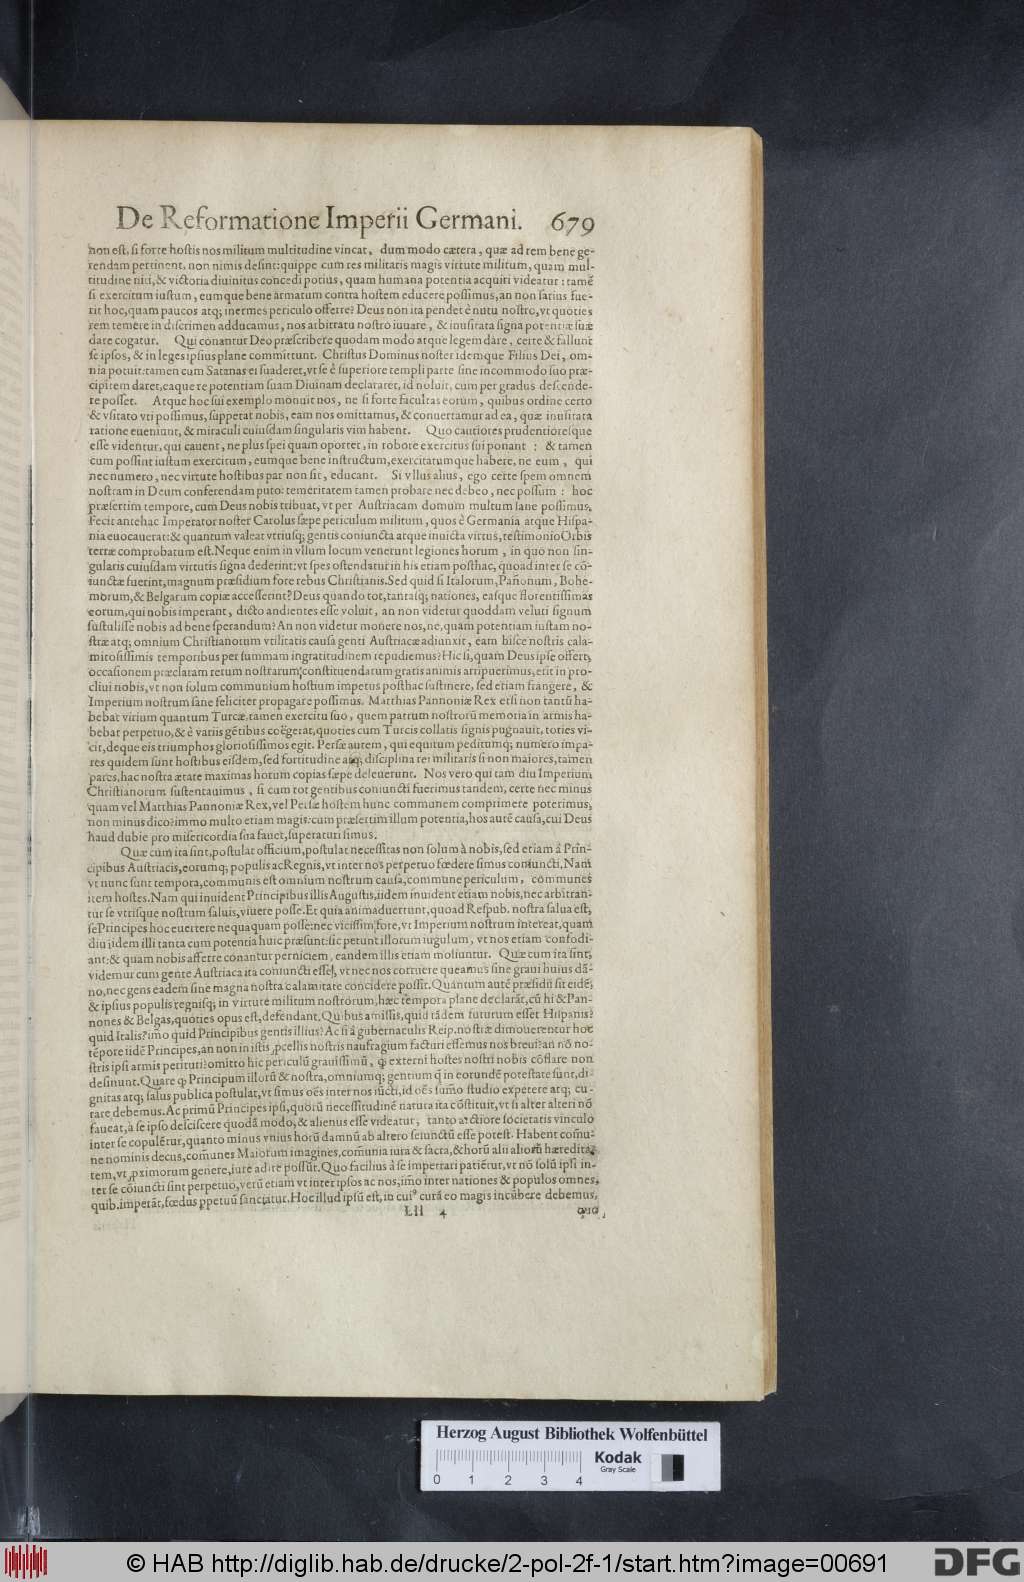 De Reformatione Imperii Germani. 679
non est, si forte hostis nos militum multitudine vincat, dum modo cætera, quæ ad rem bene ge-
rendam pertinent, non nimis desint: quippe cum res militaris magis virtute militum, quam mul-
titudine niti, & victoria diuinitus concedi potius, quam humana potentia acquiri videatur: tamē
si exercitum iustum, eumque bene armatum contra hostem educere possimus, an non satius fue-
rit hoc, quam paucos atq; inermes periculo offerre? Deus non ita pendet è nutu nostro, vt quoties
rem temere in discrimen adducamus, nos arbitratu nostro iuuare, & inusitata signa potentiæ suæ
dare cogatur. Qui conantur Deo præscribere quodam modo atque legem dare, certe & fallunt
se ipsos, & in leges ipsius plane committunt. Christus Dominus noster idemque Filius Dei, om-
nia potuit: tamen cum Satanas ei suaderet, vt se è superiore templi parte sine incommodo suo præ-
cipitem daret, eaque re potentiam suam Diuinam declararet, id noluit, cum per gradus descende-
re posset. Atque hoc sui exemplo monuit nos, ne si forte facultas eorum, quibus ordine certo
& vsitato vti possimus, suppetat nobis, eam nos omittamus, & conuertamur ad ea, quæ inusitata
ratione eueniunt, & miraculi cuiusdam singularis vim habent. Quo cautiores prudentioresque
esse videntur, qui cauent, ne plus spei quam oportet, in robore exercitus sui ponant : & tamen
cum possint iustum exercitum, eumque bene instructum, exercitatumque habere, ne eum, qui
nec numero, nec virtute hostibus par non sit, educant. Si vllus alius, ego certe spem omnem
nostram in Deum conferendam puto: temeritatem tamen probare nec debeo, nec possum : hoc
præsertim tempore, cum Deus nobis tribuat, vt per Austriacam domum multum sane possimus.
Fecit antehac Imperator noster Carolus sæpe periculum militum, quos è Germania atque Hispa-
nia euocauerat: & quantum valeat vtriusq; gentis coniuncta atque inuicta virtus, testimonio Orbis
terræ comprobatum est. Neque enim in vllum locum venerunt legiones horum, in quo non sin-
gularis cuiusdam virtutis signa dederint: vt spes ostendatur in his etiam posthac, quoad inter se cō-
iunctæ fuerint, magnum præsidium fore rebus Christianis. Sed quid si Italorum, Pañonum, Bohe-
morum, & Belgarum copiæ accesserint? Deus quando tot, tantasq; nationes, easque florentissimas
eorum, qui nobis imperant, dicto audientes esse voluit, an non videtur quoddam veluti signum
sustulisse nobis ad bene sperandum? An non videtur monere nos, ne, quam potentiam iustam no-
stræ atq; omnium Christianorum vtilitatis causa genti Austriacæ adiunxit, eam hisce nostris cala-
mitosissimis temporibus per summam ingratitudinem repudiemus? Hic si, quam Deus ipse offert,
occasionem præclaram rerum nostrarum constituendarum gratis animis arripuerimus, erit in pro-
cliui nobis, vt non solum communium hostium impetus posthac sustinere, sed etiam frangere, &
Imperium nostrum sane feliciter propagare possimus. Matthias Pannoniæ Rex etsi non tantū ha-
bebat virium quantum Turcæ, tamen exercitu suo, quem patrum nostrorū memoria in armis ha-
bebat perpetuo, & è variis gētibus coëgerat, quoties cum Turcis collatis signis pugnauit, toties vi-
cit, deque eis triumphos gloriosissimos egit. Persæ autem, qui equitum peditumq; numero impa-
res quidem sunt hostibus eisdem, sed fortitudine atq; disciplina rei militaris si non maiores, tamen
pares, hac nostra ætate maximas horum copias sæpe deleuerunt. Nos vero qui tam diu Imperium
Christianorum sustentauimus, si cum tot gentibus coniuncti fuerimus tandem, certe nec minus
quam vel Matthias Pannoniæ Rex, vel Persæ hostem hunc communem comprimere poterimus,
non minus dico? immo multo etiam magis: cum præsertim illum potentia, hos autē causa, cui Deus
haud dubie pro misericordia sua fauet, superaturi simus.
Quæ cum ita sint, postulat officium, postulat necessitas non solum à nobis, sed etiam â Prin-
cipibus Austriacis, eorumq; populis ac Regnis, vt inter nos perpetuo fœdere simus coniuncti. Nam
vt nunc sunt tempora, communis est omnium nostrum causa, commune periculum, communes
item hostes. Nam qui inuident Principibus illis Augustis, iidem inuident etiam nobis, nec arbitran-
tur se vtrisque nostrum saluis, viuere posse. Et quia animaduertunt, quoad Respub. nostra salua est,
se Principes hoc euertere nequaquam posse: nec vicissim fore, vt Imperium nostrum intereat, quam
diu iidem illi tanta cum potentia huic præsunt: sic petunt illorum iugulum, vt nos etiam confodi-
ant: & quam nobis afferre conantur perniciem, eandem illis etiam moliuntur. Quæ cum ita sint,
videmur cum gente Austriaca ita coniuncti esse, vt nec nos corruere queamus sine graui huius dā-
no, nec gens eadem sine magna nostra calamitate concidere possit. Quantum autē præsidii sit eidē,
& ipsius populis regnisq; in virtute militum nostrorum, hæc tempora plane declarāt, cū hi & Pan-
nones & Belgas, quoties opus est, defendant. Quibus amissis, quid tādem futurum esset Hispanis?
quid Italis? imo quid Principibus gentis illius? Ac si â gubernaculis Reip. nostræ dimouerentur hoc
tēpore iidē Principes, an non in istis ꝓcellis nostris naufragium facturi essemus nos breui? an nō no-
stris ipsi armis perituri? omitto hic periculū grauissimū, ꝙ externi hostes nostri nobis cōflare non
desinunt. Quare ꝙ Principum illorū & nostra, omniumq; gentium q̃ in eorundē potestate sunt, di-
gnitas atq; salus publica postulat, vt simus oēs inter nos iūcti, id oēs sum̄o studio expetere atq; cu-
rare debemus. Ac primū Principes ipsi, quorū necessitudinē natura ita cōstituit, vt si alter alteri nō
faueat, à se ipso desciscere quodā modo, & alienus esse videatur, tanto arctiore societatis vinculo
inter se copulētur, quanto minus vnius horū damnū ab altero seiunctū esse potest. Habent com̄u-
ne nominis decus, com̄unes Maiorum imagines, com̄unia iura & sacra, & horū alii aliorū hæredita-
tem, vt ꝓximorum genere, iure adire possūt. Quo facilius â se impertrari patiētur, vt nō solū ipsi in-
ter se cōiuncti sint perpetuo, verū etiam vt inter ipsos ac nos, imo inter nationes & populos omnes,
quib. imperāt, fœdus ꝑpetuū sanctatur. Hoc illud ipsū est, in cuiꝰ curā eo magis incūbere debemus,
Lll 4 quo
Herzog August Bibliothek Wolfenbüttel
0 1 2 3 4
Kodak
Gray Scale
© HAB http://diglib.hab.de/drucke/2-pol-2f-1/start.htm?image=00691
DFG